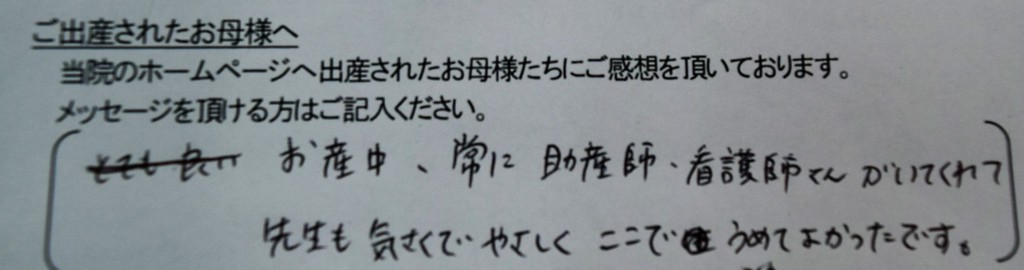 ご出産されたお母様へ
当院のホームページへ出産されたお母様たちにご感想を頂いております。
メッセージを頂ける方はご記入ください。
お産中、常に助産師・看護師さんがいてくれて
先生も気さくでやさしくここでうめてよかったです。